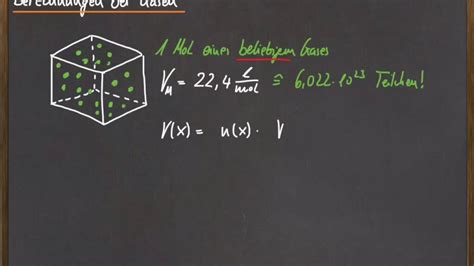 Berechnungen bei Gasen
1 Mol eines beliebigem Gases
V_M = 22,4 l/mol ≙ 6,022 · 10²³ Teilchen!
V(x) = n(x) · V